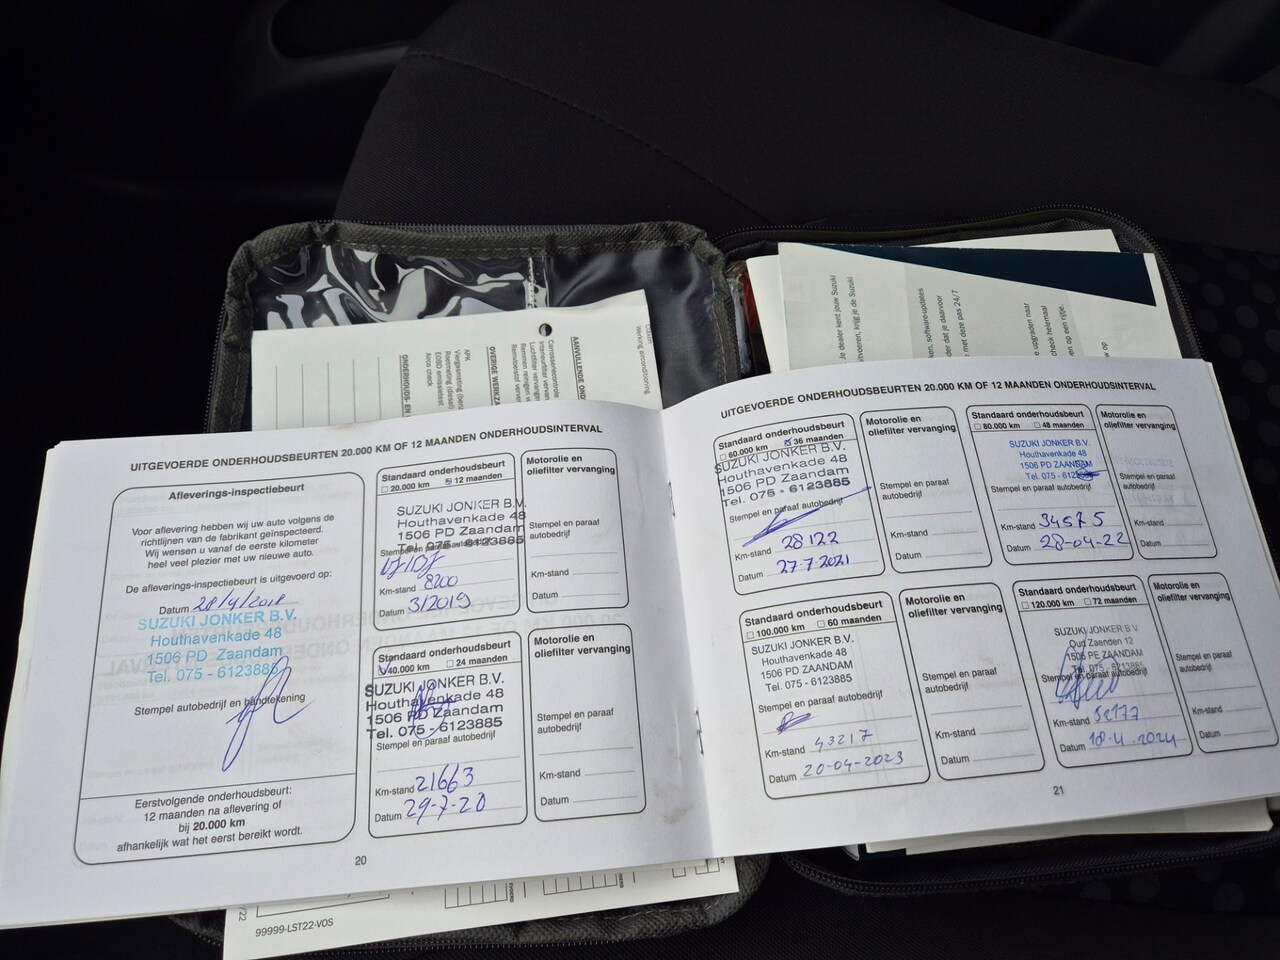 UITGEVOERDE ONDERHOUDSBEURTEN 20.000 KM OF 12 MAANDEN ONDERHOUDSINTERVAL
Afleverings-inspectiebeurt
Voor aflevering hebben wij uw auto volgens de
richtlijnen van de fabrikant geïnspecteerd.
Wij wensen u vanaf de eerste kilometer
heel veel plezier met uw nieuwe auto.
De afleverings-inspectiebeurt is uitgevoerd op:
Datum 28/4/2018
SUZUKI JONKER B.V.
Houthavenkade 48
1506 PD Zaandam
Tel. 075 - 6123885
Stempel autobedrijf en handtekening
Eerstvolgende onderhoudsbeurt:
12 maanden na aflevering of
bij 20.000 km
afhankelijk wat het eerst bereikt wordt.
Standaard onderhoudsbeurt
20.000 km 12 maanden
SUZUKI JONKER B.V.
Houthavenkade 48
1506 PD Zaandam
Tel. 075 - 6123885
Stempel en paraaf autobedrijf
Km-stand 8200
Datum 3/2019
Motorolie en
oliefilter vervanging
Stempel en paraaf
autobedrijf
Km-stand
Datum
Standaard onderhoudsbeurt
40.000 km 24 maanden
SUZUKI JONKER B.V.
Houthavenkade 48
1506 PD Zaandam
Tel. 075 - 6123885
Stempel en paraaf autobedrijf
Km-stand 21663
Datum 29-7-20
Motorolie en
oliefilter vervanging
Stempel en paraaf
autobedrijf
Km-stand
Datum
20
UITGEVOERDE ONDERHOUDSBEURTEN 20.000 KM OF 12 MAANDEN ONDERHOUDSINTERVAL
Standaard onderhoudsbeurt
60.000 km 36 maanden
SUZUKI JONKER B.V.
Houthavenkade 48
1506 PD Zaandam
Tel. 075 - 6123885
Stempel en paraaf autobedrijf
Km-stand 28122
Datum 27-7-2021
Motorolie en
oliefilter vervanging
Stempel en paraaf
autobedrijf
Km-stand
Datum
Standaard onderhoudsbeurt
80.000 km 48 maanden
SUZUKI JONKER B.V.
Houthavenkade 48
1506 PD ZAANDAM
Tel. 075 - 612
Stempel en paraaf autobedrijf
Km-stand 34575
Datum 28-04-22
Motorolie en
oliefilter vervanging
Stempel en paraaf
autobedrijf
Km-stand
Datum
Standaard onderhoudsbeurt
100.000 km 60 maanden
SUZUKI JONKER B.V.
Houthavenkade 48
1506 PD ZAANDAM
Tel. 075 - 6123885
Stempel en paraaf autobedrijf
Km-stand 43217
Datum 20-04-2023
Motorolie en
oliefilter vervanging
Stempel en paraaf
autobedrijf
Km-stand
Datum
Standaard onderhoudsbeurt
120.000 km 72 maanden
SUZUKI JONKER B.V
Oud Zaenden 12
1506 PE ZAANDAM
Tel. 075 6123885
Stempel en paraaf autobedrijf
Km-stand 52177
Datum 18-4-2024
Motorolie en
oliefilter vervanging
Stempel en paraaf
autobedrijf
Km-stand
Datum
21
99999-LST22-V0S
Je dealer kent jouw Suzuki
krijg je de Suzuki
software-updates
dat je daarvoor
met deze pas 24/7
upgraden naar
check helemaal
op een rijtje.
Werking airconditioning
Carrosseriecontrole
Interieurfilter
Luchtfilter
Remmen reinigen
Remvloeistof
APK
Viergasmeting
Roetmeting (diesel)
EOBD emissietest
Airco check